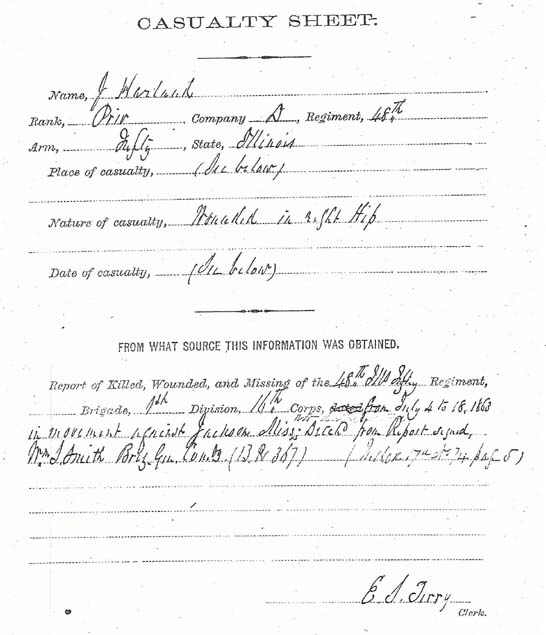 CASUALTY SHEET.
Name, J Harland
Rank, Priv, Company D, Regiment, 48th
Arm, Infty, State, Illinois
Place of casualty, (See below)
Nature of casualty, Wounded in right Hip
Date of casualty, (See below)
FROM WHAT SOURCE THIS INFORMATION WAS OBTAINED.
Report of Killed, Wounded, and Missing of the 48th Ills Infty Regiment,
Brigade, 1st Division, 16th Corps, dated from July 4 to 18, 1863
in movement against Jackson Miss; from Report signed,
Wm. S. Smith Brig. Gen. Comd'g (13. & 367)
E. S. Terry
Clerk.